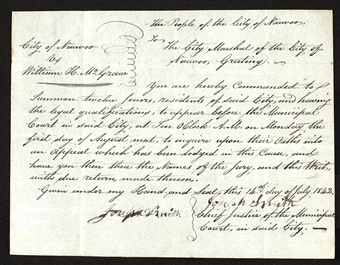 The People of the City of Nauvoo
City of Nauvoo To
vs The City Marshal of the City of
William H. McGraw Nauvoo, Greeting.
You are hereby Commanded to
Summon twelve Jurors, residents of said City, and having
the legal qualifications, to appear before the Municipal
Court in said City, at Ten O'Clock A.M. on Monday, the
first day of August next, to inquire upon their Oaths into
an Appeal which has been lodged in this Cause, and
have you then there the Names of the Jury, and this Writ,
with due return made thereon.
Given under my Hand, and Seal, this 16th day of July, 1842.
Joseph Smith Joseph Smith
Chief Justice of the Municipal
Court, in said City.